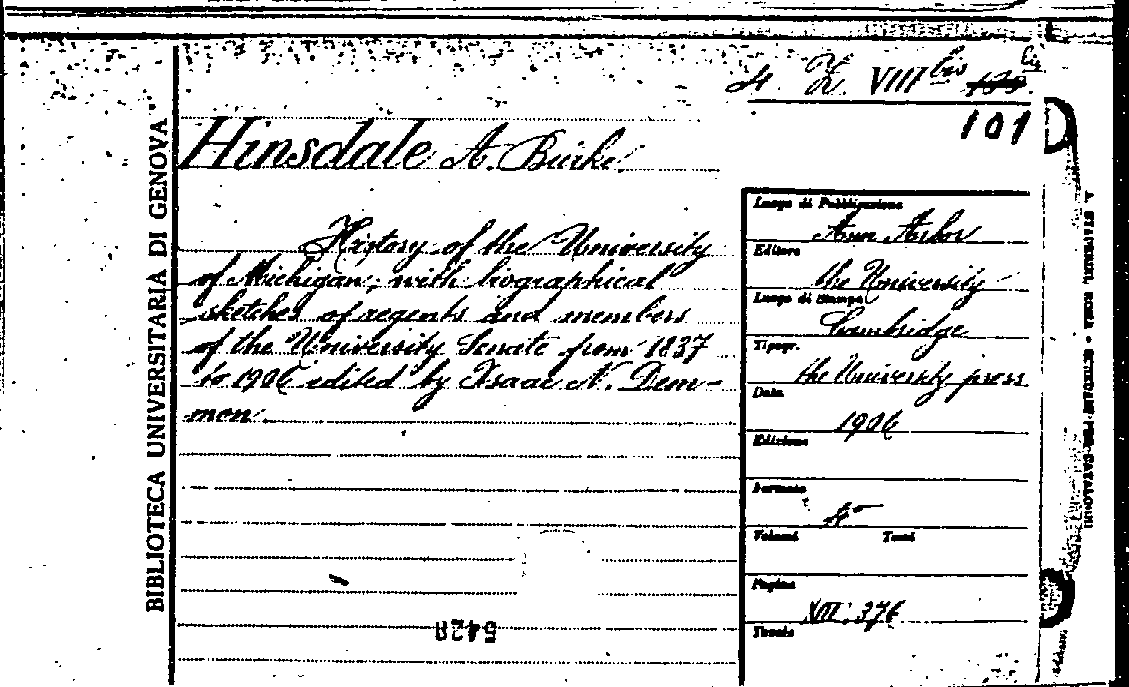 4. Z. VIII bis
101
Hinsdale A. Burke
History of the University
of Michigan, with biographical
sketches of regents and members
of the University Senate from 1837
to 1906 edited by Isaac N. Dem-
mon
Luogo di Pubblicazione
Ann Arbor
Editore
the University
Luogo di Stampa
Cambridge
Tipogr.
the University press
Data
1906
Edizione
Formato
4°
Volumi Tomi
Pagine
XIII, 376
Tavole
5428
BIBLIOTECA UNIVERSITARIA DI GENOVA